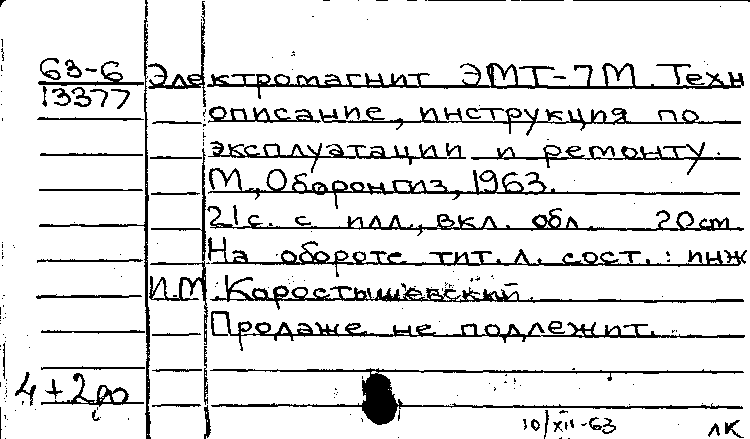 63-6 Электромагнит ЭМТ-7М. Техн
13377
описание, инструкция по
эксплуатации и ремонту.
М., Оборонгиз, 1963.
21с. с илл., вкл. обл. 20см.
На обороте тит. л. сост.: инж
И.М. Коростышевский.
Продаже не подлежит.
4+2до
10/XII-63 лк